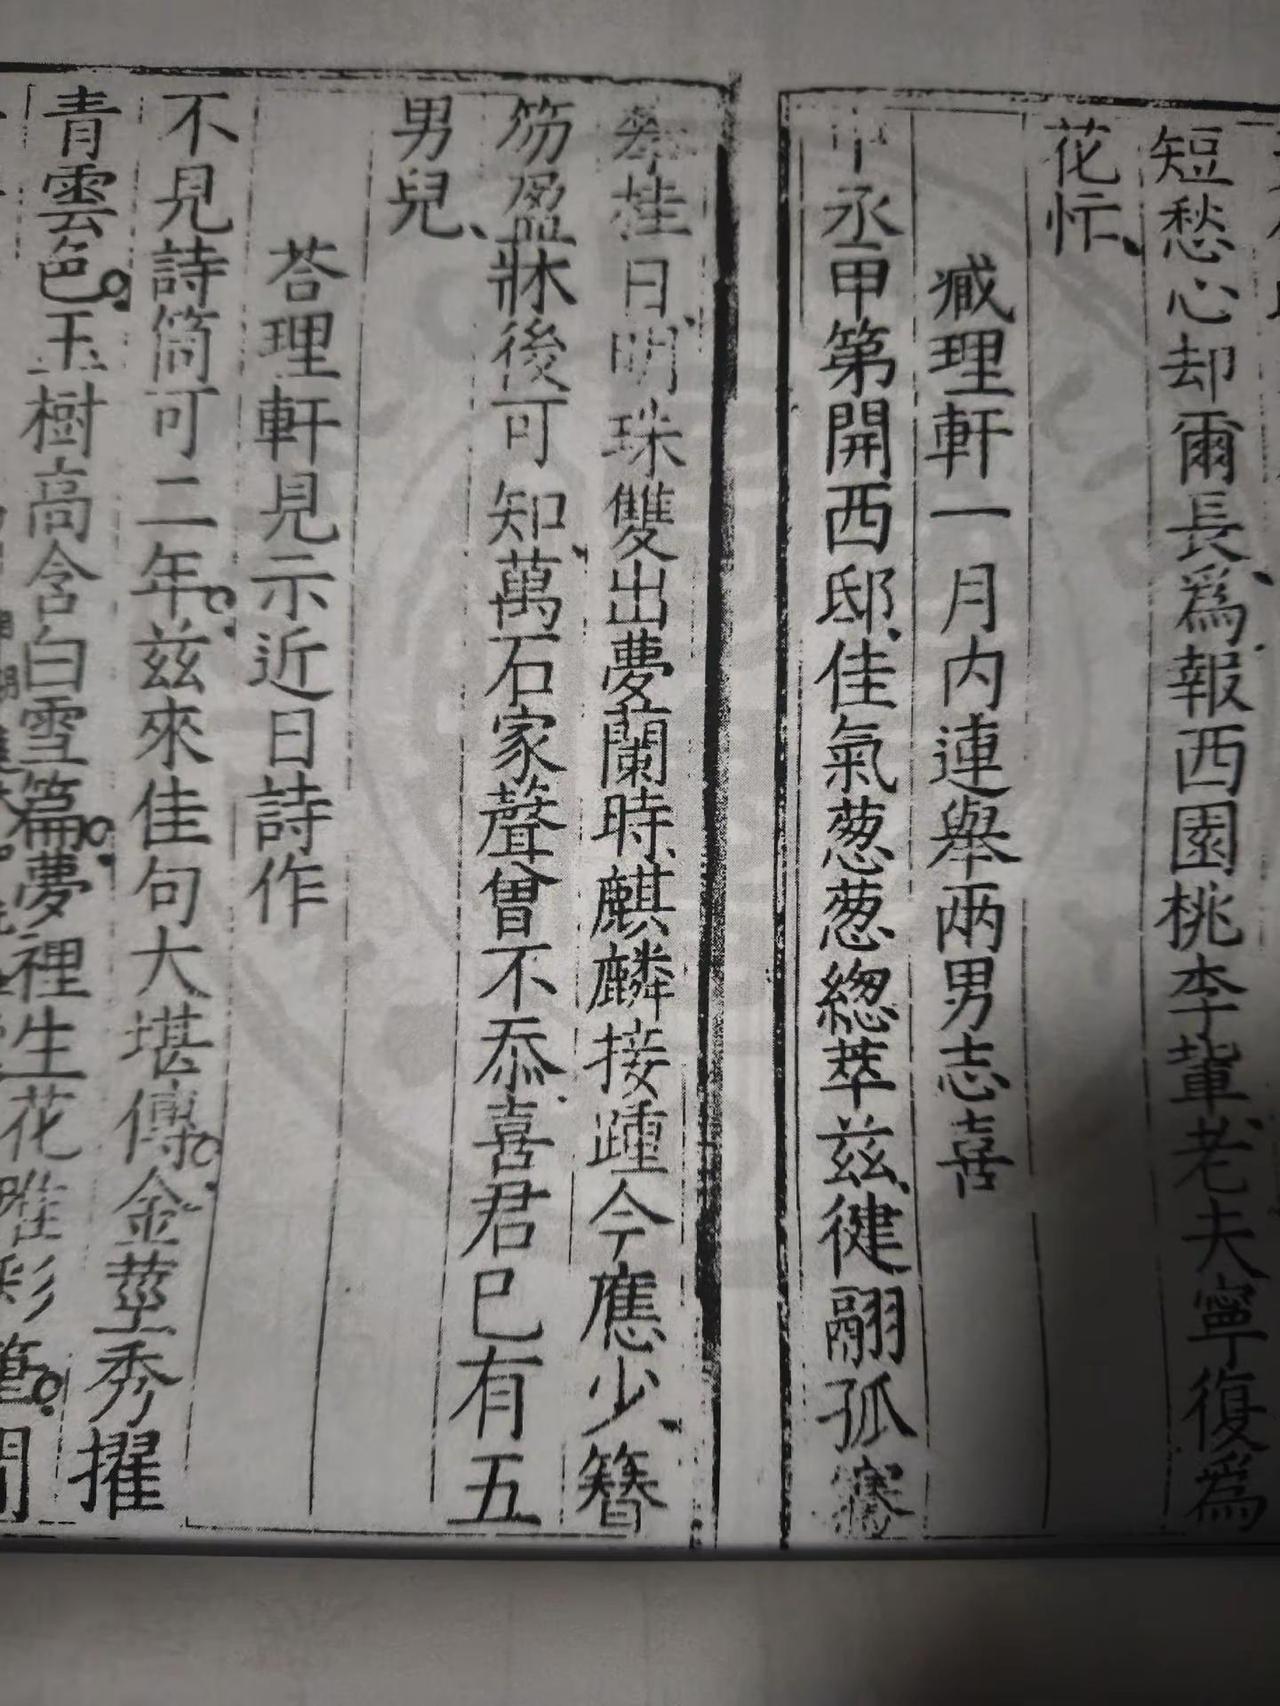 短愁心却爾長為報西園桃李輩老夫寧復為
花忙
臧理軒一月內連舉兩男志喜
中丞甲第開西邸佳氣葱葱總萃兹徤翮孤騫
桂日明珠雙出夢蘭時麒麟接踵今應少簪
笏盈牀後可知萬石家聲曾不忝喜君已有五
男兒
荅理軒見示近日詩作
不見詩筒可二年兹來佳句大堪傳金莖秀擢
青雲色玉樹高含白雪篇夢裡生花唯彩筆間